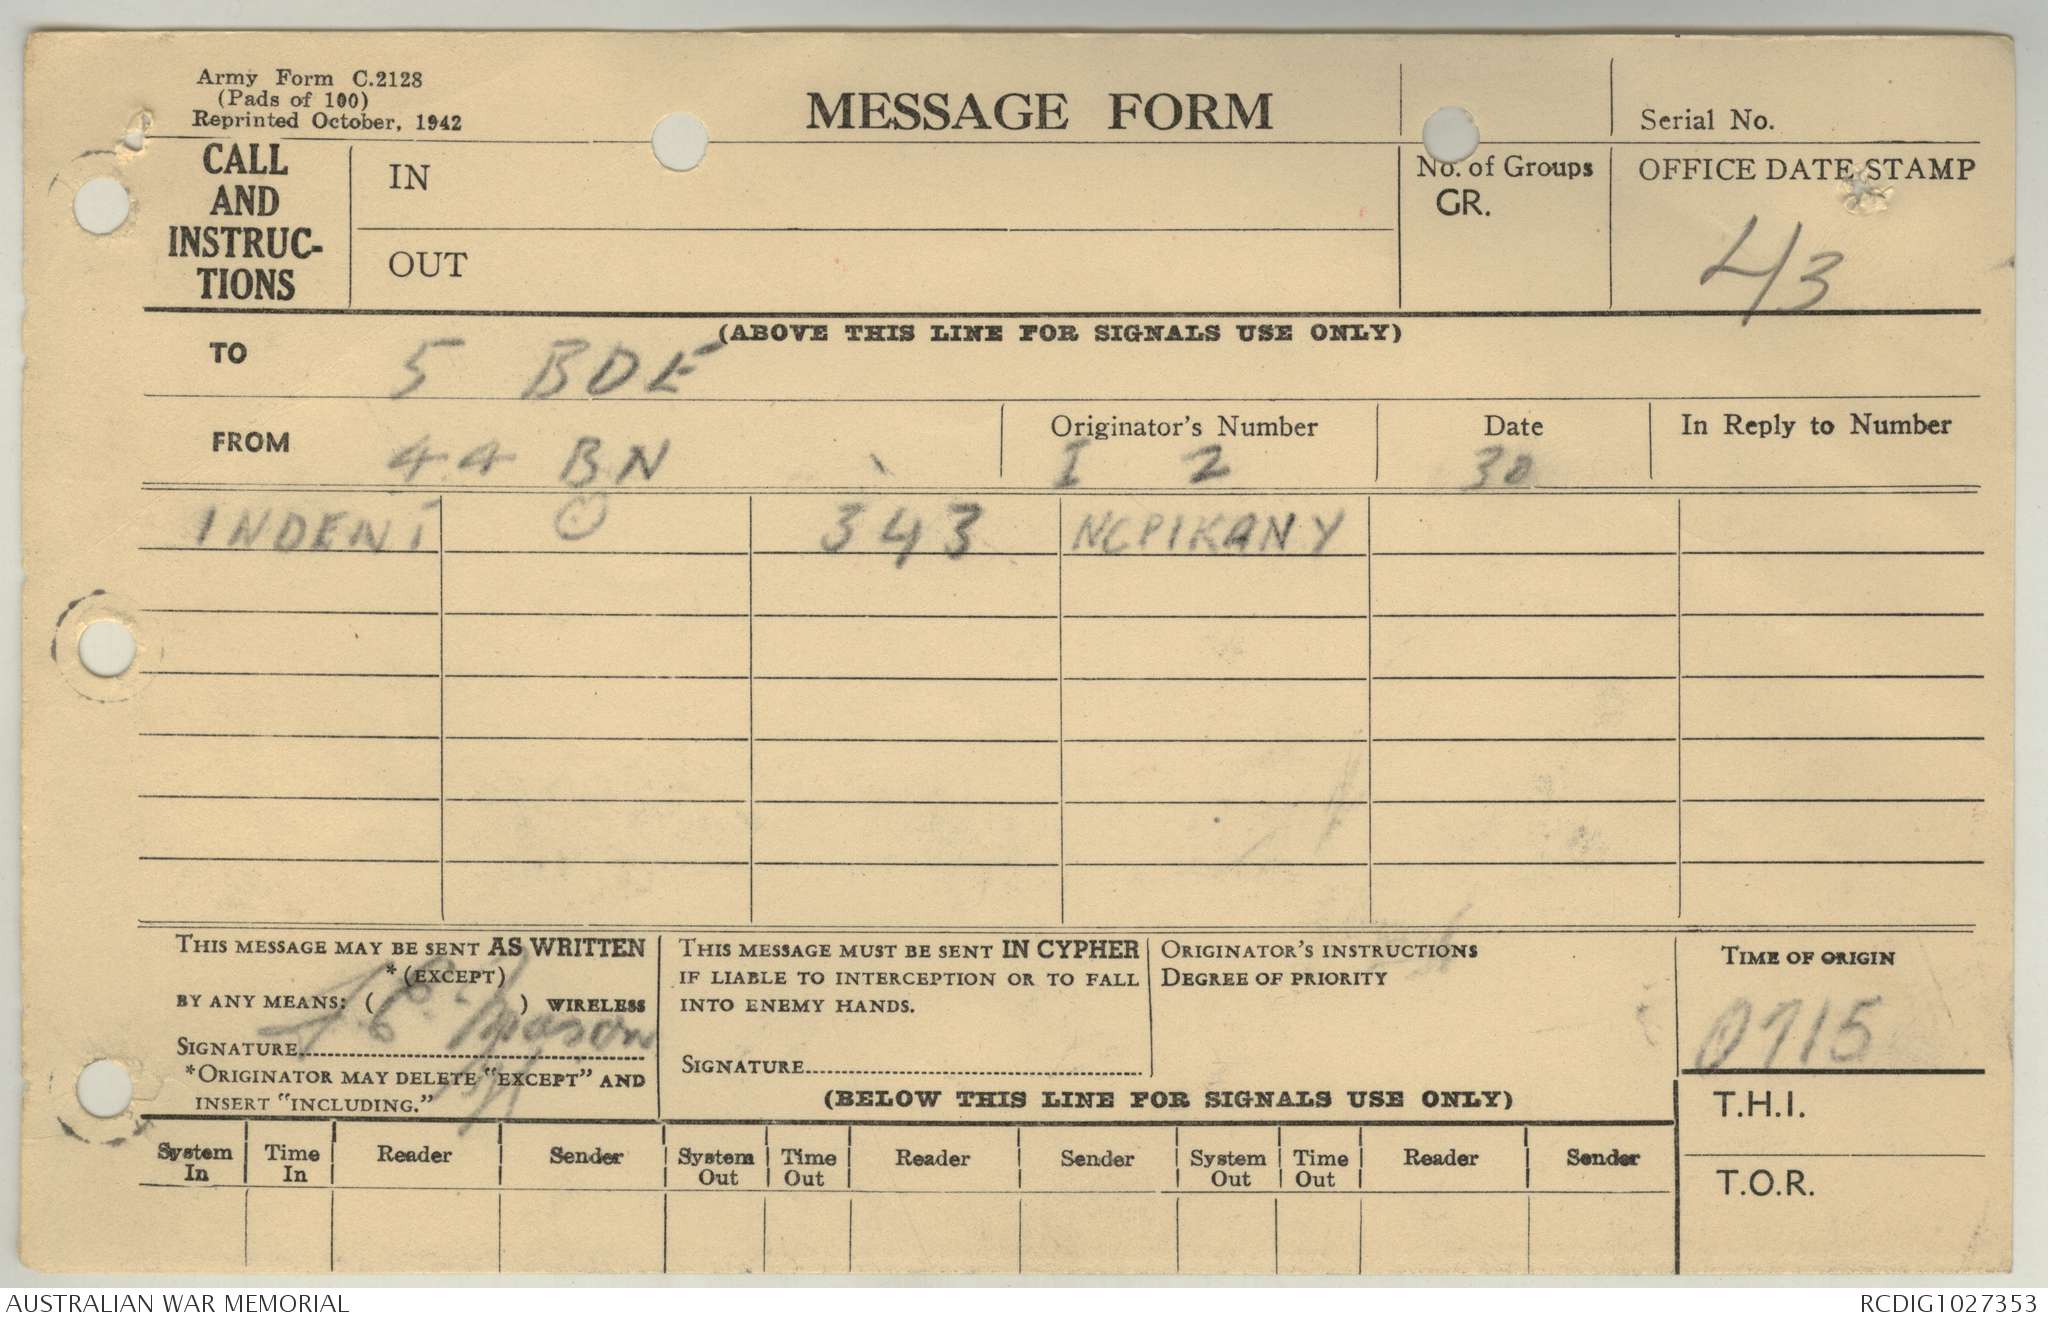 Army Form C.2128
(Pads of 100)
Reprinted October, 1942
MESSAGE FORM
Serial No.
CALL AND INSTRUC-TIONS
IN
OUT
No. of Groups
GR.
OFFICE DATE STAMP
43
(ABOVE THIS LINE FOR SIGNALS USE ONLY)
TO 5 BDE
FROM 44 BN
Originator's Number
I 2
Date
30
In Reply to Number
INDENT 343 NCPIKANY
THIS MESSAGE MAY BE SENT AS WRITTEN
*(EXCEPT)
BY ANY MEANS: ( ) WIRELESS
SIGNATURE Mason
*ORIGINATOR MAY DELETE "EXCEPT" AND
INSERT "INCLUDING."
THIS MESSAGE MUST BE SENT IN CYPHER
IF LIABLE TO INTERCEPTION OR TO FALL
INTO ENEMY HANDS.
SIGNATURE
ORIGINATOR'S INSTRUCTIONS
DEGREE OF PRIORITY
TIME OF ORIGIN
0715
(BELOW THIS LINE FOR SIGNALS USE ONLY)
T.H.I.
T.O.R.
System In Time In Reader Sender System Out Time Out Reader Sender System Out Time Out Reader Sender
AUSTRALIAN WAR MEMORIAL
RCDIG1027353